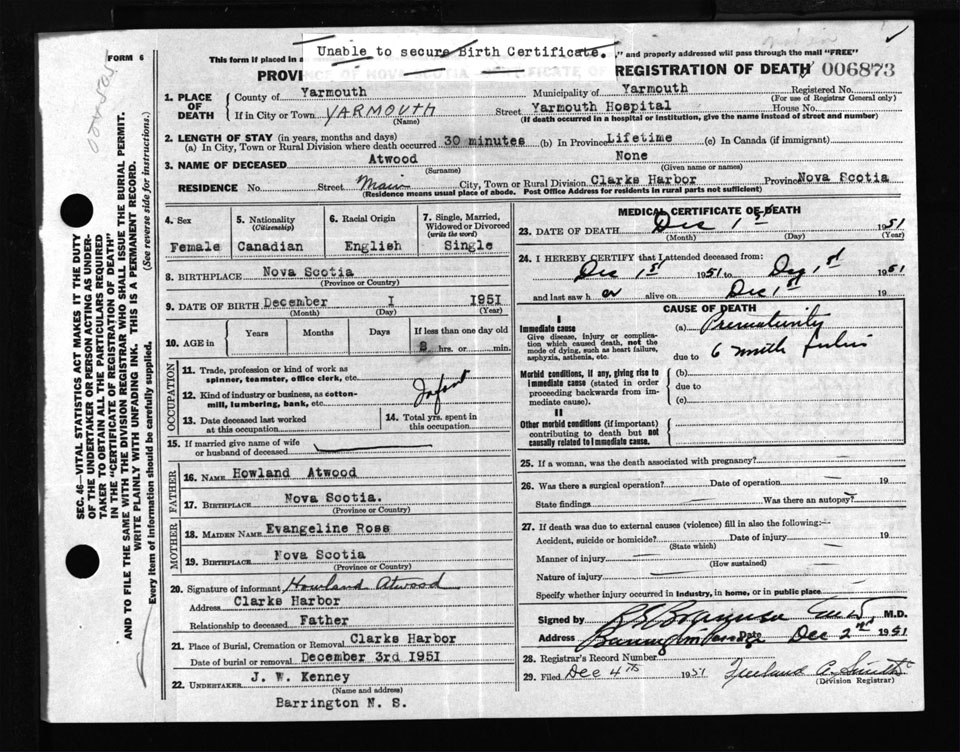 Unable to secure Birth Certificate.
FORM 6
This form if placed in a ," and properly addressed will pass through the mail "FREE"
PROVINCE OF NOVA SCOTIA CERTIFICATE OF REGISTRATION OF DEATH 006873
1. PLACE OF DEATH
County of Yarmouth Municipality of Yarmouth Registered No.
(For use of Registrar General only)
If in City or Town YARMOUTH Street Yarmouth Hospital House No.
(Name) (If death occurred in a hospital or institution, give the name instead of street and number)
2. LENGTH OF STAY (in years, months and days)
(a) In City, Town or Rural Division where death occurred 30 minutes (b) In Province Lifetime (c) In Canada (if immigrant)
3. NAME OF DECEASED Atwood None
(Surname) (Given name or names)
RESIDENCE No. Street Main City, Town or Rural Division Clarks Harbor Province Nova Scotia
(Residence means usual place of abode. Post Office Address for residents in rural parts not sufficient)
4. Sex 5. Nationality (Citizenship) 6. Racial Origin 7. Single, Married, Widowed or Divorced (write the word)
Female Canadian English Single
8. BIRTHPLACE Nova Scotia
(Province or Country)
9. DATE OF BIRTH December 1 1951
(Month) (Day) (Year)
10. AGE in Years Months Days If less than one day old
hrs. or min.
OCCUPATION
11. Trade, profession or kind of work as spinner, teamster, office clerk, etc.
Infant
12. Kind of industry or business, as cotton-mill, lumbering, bank, etc.
13. Date deceased last worked at this occupation
14. Total yrs. spent in this occupation
15. If married give name of wife or husband of deceased
FATHER
16. NAME Howland Atwood
17. BIRTHPLACE Nova Scotia.
(Province or Country)
MOTHER
18. MAIDEN NAME Evangeline Ross
19. BIRTHPLACE Nova Scotia
(Province or Country)
20. Signature of informant Howland Atwood
Address Clarks Harbor
Relationship to deceased Father
21. Place of Burial, Cremation or Removal Clarks Harbor
Date of burial or removal December 3rd 1951
22. UNDERTAKER J. W. Kenney
(Name and address)
Barrington N. S.
MEDICAL CERTIFICATE OF DEATH
23. DATE OF DEATH Dec 1st 1951
(Month) (Day) (Year)
24. I HEREBY CERTIFY that I attended deceased from:
Dec 1st 1951 to Dec 1st 1951
and last saw h er alive on Dec 1st 19
CAUSE OF DEATH
I
Immediate cause (a) Prematurity
Give disease, injury or complication which caused death, not the mode of dying, such as heart failure, asphyxia, asthenia, etc.
due to 6 month
Morbid conditions, if any, giving rise to immediate cause (stated in order proceeding backwards from immediate cause).
(b)
due to
(c)
II
Other morbid conditions (if important) contributing to death but not causally related to immediate cause.
25. If a woman, was the death associated with pregnancy?
26. Was there a surgical operation? Date of operation 19
State findings Was there an autopsy?
27. If death was due to external causes (violence) fill in also the following:—
Accident, suicide or homicide? Date of injury 19
(State which)
Manner of injury
(How sustained)
Nature of injury
Specify whether injury occurred in industry, in home, or in public place
Signed by M.D.
Address Date Dec 2nd 1951
28. Registrar's Record Number
29. Filed Dec 4th 1951
(Division Registrar)
SEC. 46—VITAL STATISTICS ACT MAKES IT THE DUTY
OF THE UNDERTAKER OR PERSON ACTING AS UNDER-
TAKER TO OBTAIN ALL THE PARTICULARS REQUIRED
IN THE "CERTIFICATE OF REGISTRATION OF DEATH"
AND TO FILE THE SAME WITH THE DIVISION REGISTRAR WHO SHALL ISSUE THE BURIAL PERMIT.
WRITE PLAINLY WITH UNFADING INK. THIS IS A PERMANENT RECORD.
Every item of information should be carefully supplied. (See reverse side for instructions.)